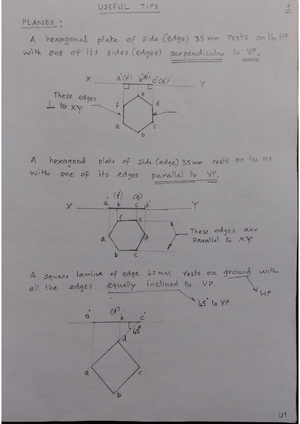 USEFUL TIPS
1
PLANES:
A hexagonal plate of side (edge) 35 mm rests on the HP
with one of its sides (edges) perpendicular to VP.
X Y
These edges
⊥ to XY
f d
a c
b
A hexagonal plate of side (edge) 35 mm rests on the HP
with one of its edges parallel to VP.
(f') (e')
a' b' c' d'
X Y
f e
a d
b c
These edges are
parallel to XY
A square lamina of edge 40 mm rests on ground with
all the edges equally inclined to VP.
45° to VP
HP
(d')
a' b' c'
45°
d
a c
b
U1